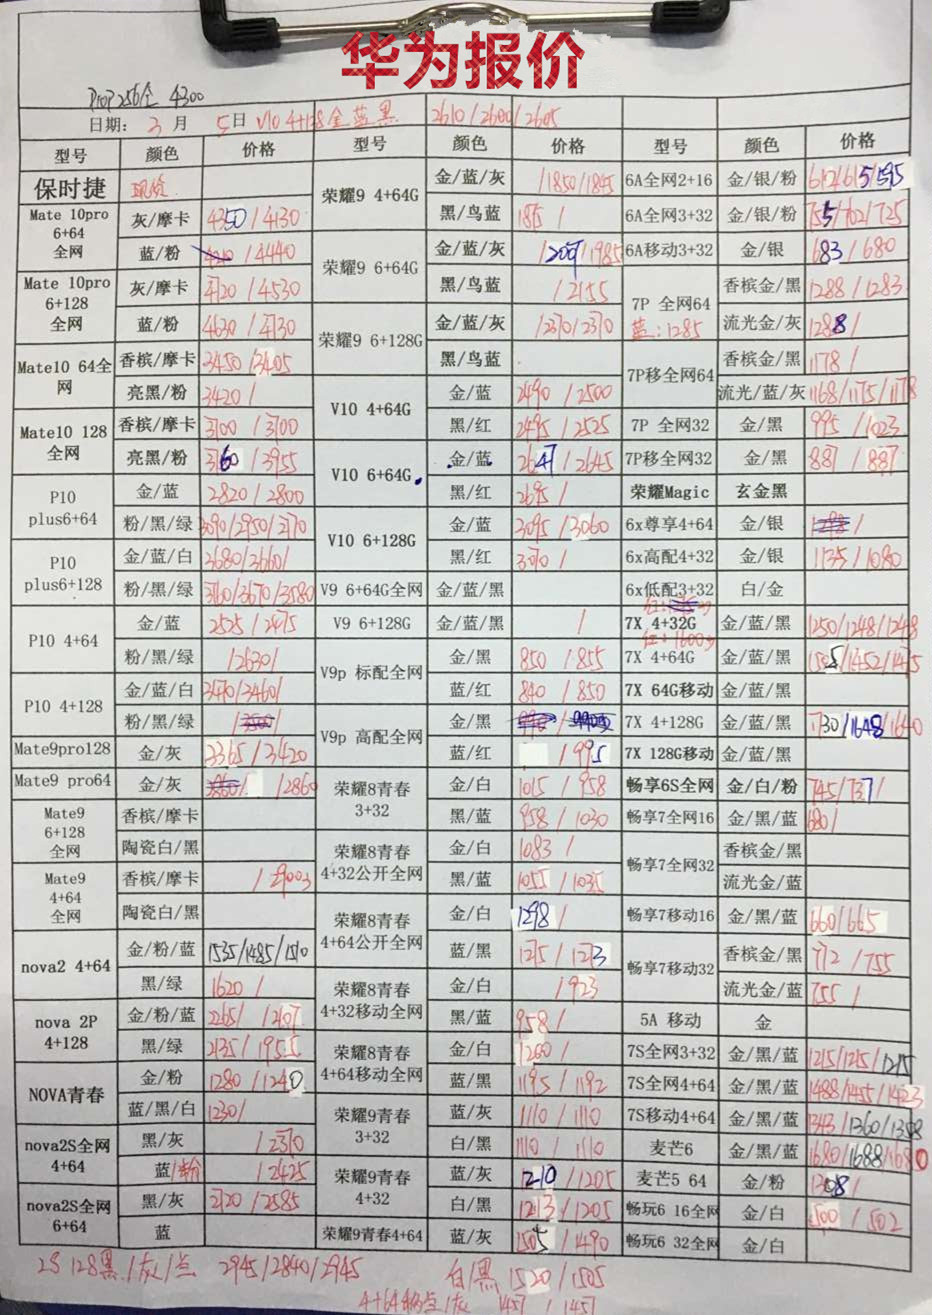 华为报价
ProP256全 4300
日期: 3 月 5日 V10 4+128金蓝黑 2610/2600/2605
型号 颜色 价格 型号 颜色 价格 型号 颜色 价格
保时捷 现货 荣耀9 4+64G 金/蓝/灰 /1850/1845 6A全网2+16 金/银/粉
Mate 10pro 6+64 全网 灰/摩卡 4350/4130 黑/鸟蓝 1815 / 6A全网3+32 金/银/粉 755/702/725
蓝/粉 /4440 荣耀9 6+64G 金/蓝/灰 6A移动3+32 金/银 683/680
Mate 10pro 6+128 全网 灰/摩卡 4720/4530 黑/鸟蓝 /2155 7P 全网64 蓝:1285 香槟金/黑 1288/1283
蓝/粉 4630/4730 荣耀9 6+128G 金/蓝/灰 /2370/2370 流光金/灰 1288/
Mate10 64全网 香槟/摩卡 3450/3405 黑/鸟蓝 7P移全网64 香槟金/黑 1178/
亮黑/粉 3420/ V10 4+64G 金/蓝 2490/2500 流光/蓝/灰 1168/1175/1178
Mate10 128 全网 香槟/摩卡 3700/3700 黑/红 2495/2525 7P 全网32 金/黑 995/1023
亮黑/粉 3760/3955 V10 6+64G 金/蓝 2647/2645 7P移全网32 金/黑 887/887
P10 plus6+64 金/蓝 2820/2800 黑/红 2695/ 荣耀Magic 玄金黑
粉/黑/绿 3090/2950/2770 V10 6+128G 金/蓝 3095/3060 6x尊享4+64 金/银
P10 plus6+128 金/蓝/白 3680/3660/ 黑/红 3070/ 6x高配4+32 金/银 1135/1080
粉/黑/绿 3760/3670/3580 V9 6+64G全网 金/蓝/黑 6x低配3+32 白/金
P10 4+64 金/蓝 2525/2475 V9 6+128G 金/蓝/黑 / 7X 4+32G 金/蓝/黑 1250/1248/1248
粉/黑/绿 /2630/ V9p 标配全网 金/黑 850/855 7X 4+64G 金/蓝/黑 1505/1452/1475
P10 4+128 金/蓝/白 3470/3460/ 蓝/红 840/850 7X 64G移动 金/蓝/黑
粉/黑/绿 V9p 高配全网 金/黑 7X 4+128G 金/蓝/黑 1730/1648/1640
Mate9pro128 金/灰 3365/3420 蓝/红 /995 7X 128G移动 金/蓝/黑
Mate9 pro64 金/灰 /2860 荣耀8青春 3+32 金/白 1015/958 畅享6S全网 金/白/粉 745/737/
Mate9 6+128 全网 香槟/摩卡 黑/蓝 958/1030 畅享7全网16 金/黑/蓝 680/
陶瓷白/黑 荣耀8青春 4+32公开全网 金/白 1083/ 畅享7全网32 香槟金/黑
Mate9 4+64 全网 香槟/摩卡 黑/蓝 1055/1035 流光金/蓝
陶瓷白/黑 荣耀8青春 4+64公开全网 金/白 1298/ 畅享7移动16 金/黑/蓝 660/665
nova2 4+64 金/粉/蓝 1535/1485/1510 蓝/黑 1275/1273 畅享7移动32 香槟金/黑 772/755
黑/绿 1620/ 荣耀8青春 4+32移动全网 金/白 /923 流光金/蓝 755/
nova 2P 4+128 金/粉/蓝 黑/蓝 958/ 5A 移动 金
黑/绿 2135/1955 荣耀8青春 4+64移动全网 金/白 1200/ 7S全网3+32 金/黑/蓝 1215/1215/1215
NOVA青春 金/粉 1280/1240 蓝/黑 1195/1192 7S全网4+64 金/黑/蓝 1488/1455/1423
蓝/黑/白 1230/ 荣耀9青春 3+32 蓝/灰 1110/1110 7S移动4+64 金/黑/蓝 1343/1360/1358
nova2S全网 4+64 黑/灰 /2370 白/黑 1110/1110 麦芒6 金/黑/蓝 1680/1688/1680
蓝/粉 /2425 荣耀9青春 4+32 蓝/灰 1210/1205 麦芒5 64 金/粉 1208/
nova2S全网 6+64 黑/灰 2720/2585 白/黑 1213/1205 畅玩6 16全网 金/白 500/502
蓝 荣耀9青春4+64 蓝/灰 1505/1490 畅玩6 32全网 金/白
2S 128黑/灰/ 2945/2840/2945 白/黑 1520/1505
1457/1457